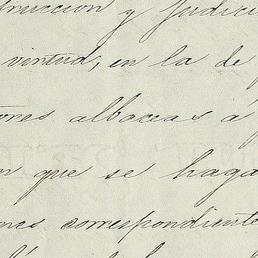 trucción y Judici
virtud, en la de
ores albaceas á
n que se haga
nes correspondiente